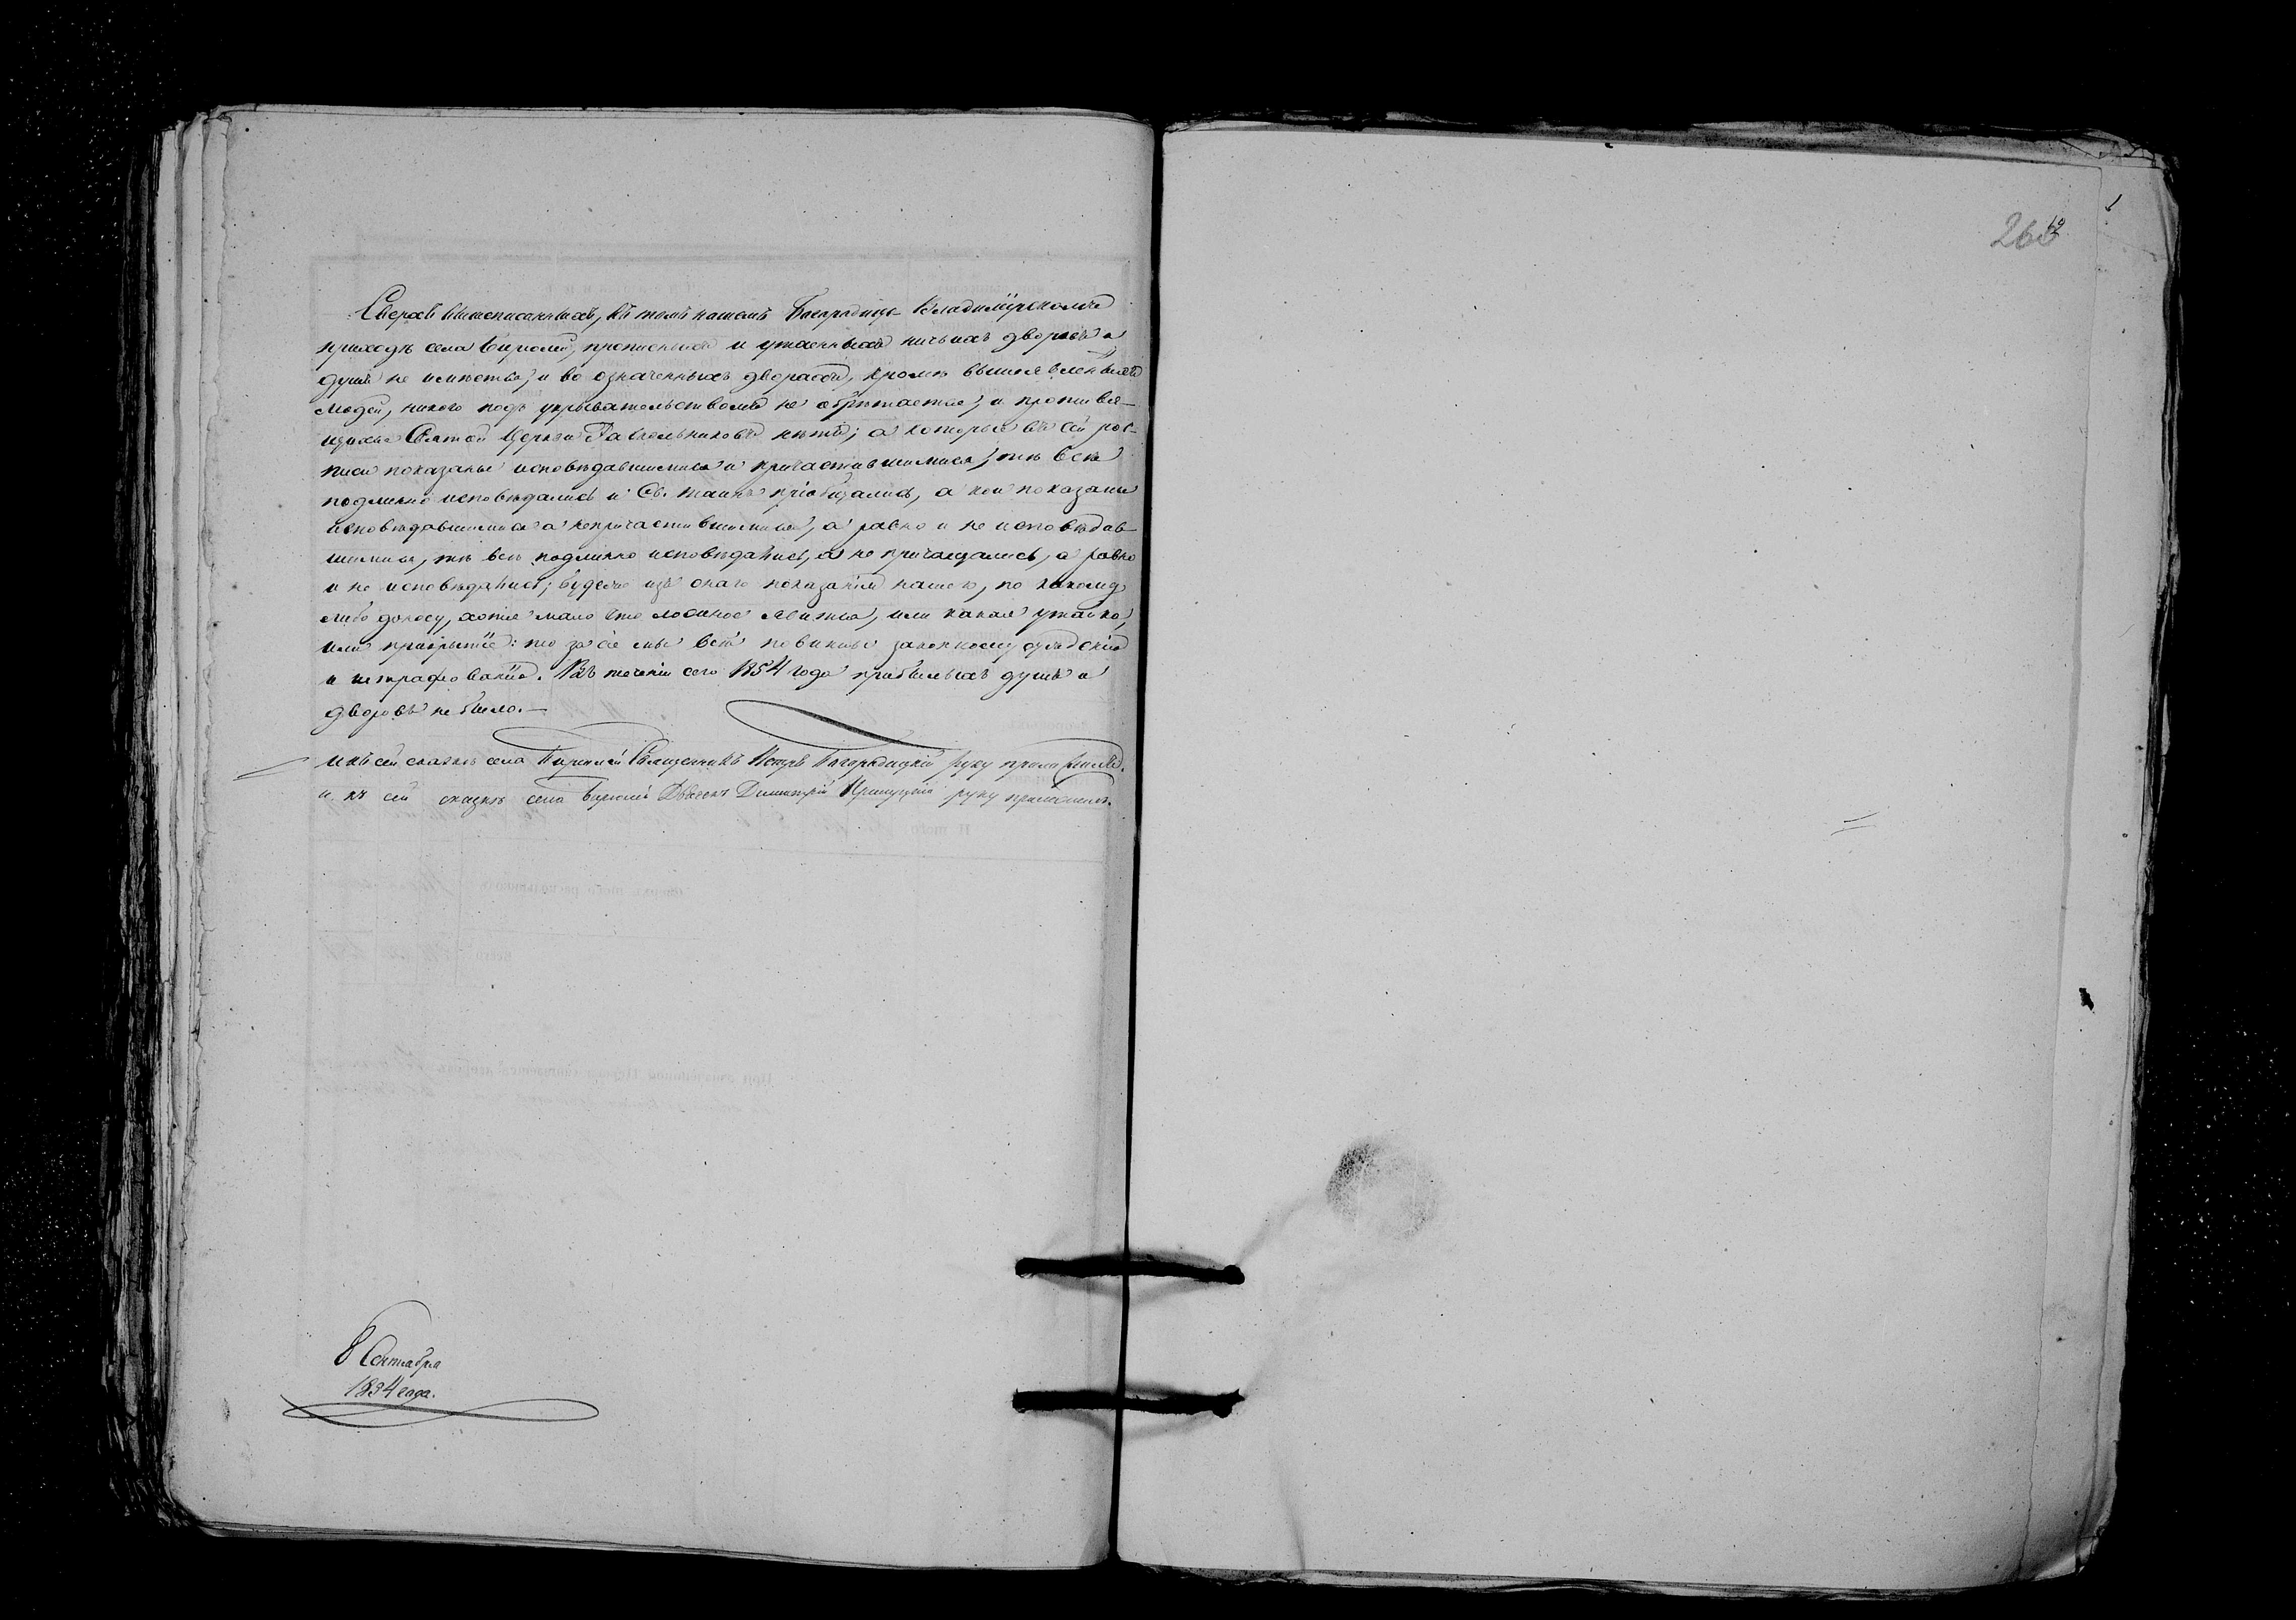 Сверхъ вышеписанныхъ, въ томъ нашемъ Богородице-Владимірскомъ
приходѣ села Бирюлей, прописныхъ и утаенныхъ ничьихъ дворовъ и
душъ не имѣется, и во означенныхъ дворахъ, кромѣ вышеявленныхъ
людей, никого подъ укрывательствомъ не обрѣтается, и противя-
щихся Святой Церкви Раскольниковъ нѣтъ; а которые въ сей рос-
писи показаны исповѣдавшимися и причастившимися, тѣ всѣ
подлинно исповѣдались и Св. таинъ пріобщались, а кои показаны
исповѣдавшимися а непричастившимися, а равно и не исповѣдав-
шимися, тѣ всѣ подлинно исповѣдались, а не причащались, а равно
и не исповѣдались; будеже изъ онаго показанія нашего, по какому
либо доносу, хотя мало что ложное явится, или какая утайка,
или прикрытіе: то за сіе мы всѣ повинны законному сужденію
и штрафованію. Въ теченіи сего 1854 года прибылыхъ душъ и
дворовъ не было.—
Къ сей сказкѣ села Бирюлей Священникъ Петръ Богородицкій руку приложилъ.
и къ сей сказкѣ села Бирюлей Дьячекъ Димитрій руку приложилъ.
8 Сентября
1854 года.